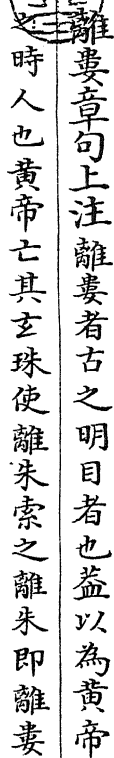 離婁章句上注離婁者古之明目者也葢以為黃帝
之時人也黃帝亡其玄珠使離朱索之離朱即離婁